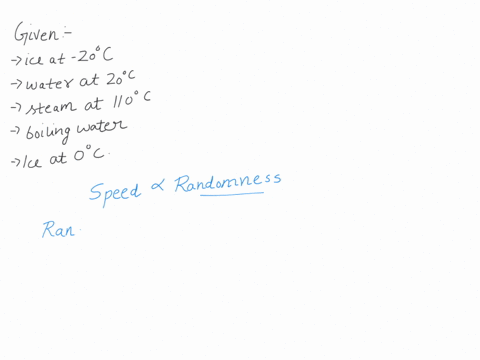 Given:-
→ice at -20°C
→water at 20°C
→steam at 110°C
→boiling water
→Ice at 0°C.
Speed ∝ Randomness
Ran